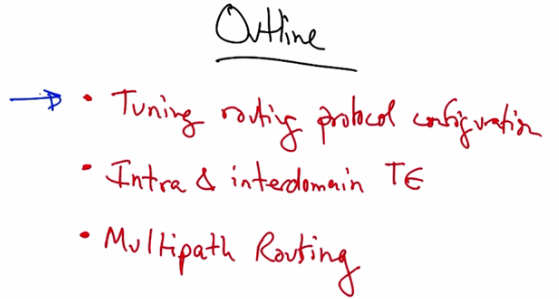 Outline
• Tuning routing protocol configuration
• Intra & interdomain TE
• Multipath Routing